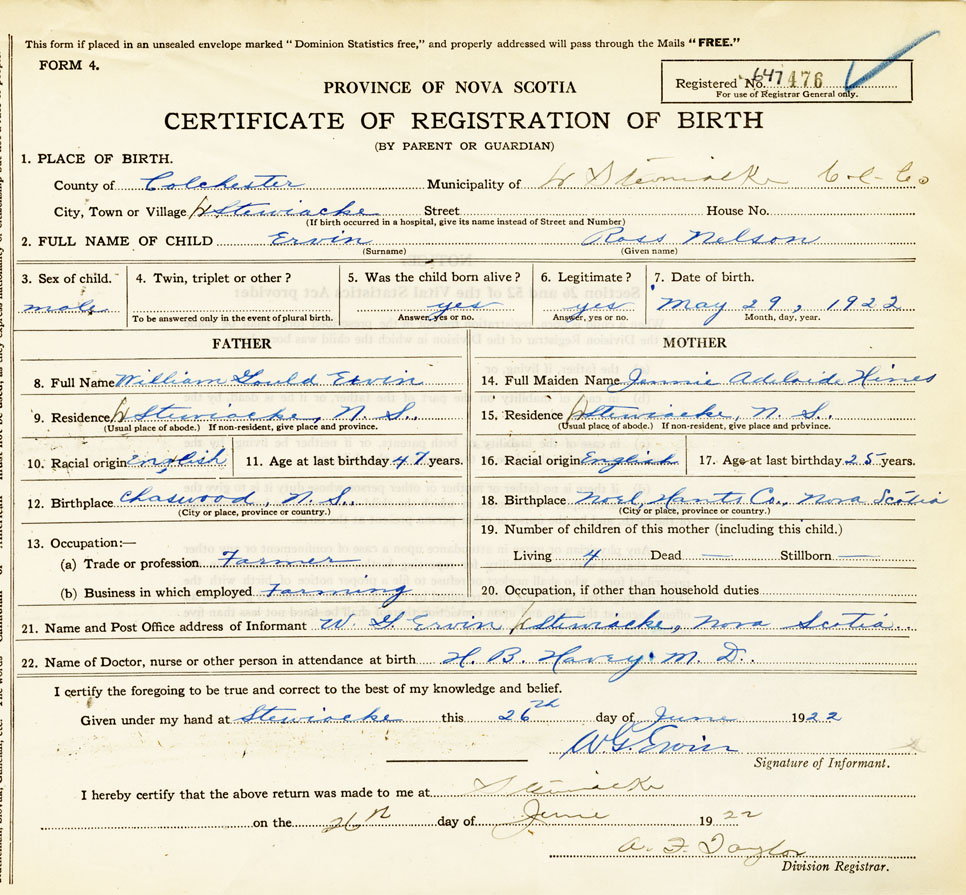 This form if placed in an unsealed envelope marked "Dominion Statistics free," and properly addressed will pass through the Mails "FREE."
FORM 4.
Registered No. 647 476
For use of Registrar General only.
PROVINCE OF NOVA SCOTIA
CERTIFICATE OF REGISTRATION OF BIRTH
(BY PARENT OR GUARDIAN)
1. PLACE OF BIRTH.
County of Colchester Municipality of W Stewiacke Col Co
City, Town or Village W Stewiacke Street House No.
(If birth occurred in a hospital, give its name instead of Street and Number)
2. FULL NAME OF CHILD Ervin Ross Nelson
(Surname) (Given name)
3. Sex of child. 4. Twin, triplet or other? 5. Was the child born alive? 6. Legitimate? 7. Date of birth.
male yes yes May 29, 1922
To be answered only in the event of plural birth. Answer, yes or no. Answer, yes or no. Month, day, year.
FATHER MOTHER
8. Full Name William Gould Ervin 14. Full Maiden Name Jennie Adelaide Hines
9. Residence W Stewiacke, N. S. 15. Residence W Stewiacke, N. S.
(Usual place of abode.) If non-resident, give place and province. (Usual place of abode.) If non-resident, give place and province.
10. Racial origin English 11. Age at last birthday 47 years. 16. Racial origin English 17. Age at last birthday 25 years.
12. Birthplace Chaswood, N. S. 18. Birthplace Noel, Hants Co., Nova Scotia
(City or place, province or country.) (City or place, province or country.)
13. Occupation:— 19. Number of children of this mother (including this child.)
(a) Trade or profession Farmer Living 4 Dead — Stillborn —
(b) Business in which employed Farming 20. Occupation, if other than household duties
21. Name and Post Office address of Informant W. G. Ervin W Stewiacke, Nova Scotia
22. Name of Doctor, nurse or other person in attendance at birth H. B. Havey. M. D.
I certify the foregoing to be true and correct to the best of my knowledge and belief.
Given under my hand at Stewiacke this 26th day of June 1922
W. G. Ervin
Signature of Informant.
I hereby certify that the above return was made to me at Stewiacke
on the 26th day of June 1922
A. F. Taylor
Division Registrar.